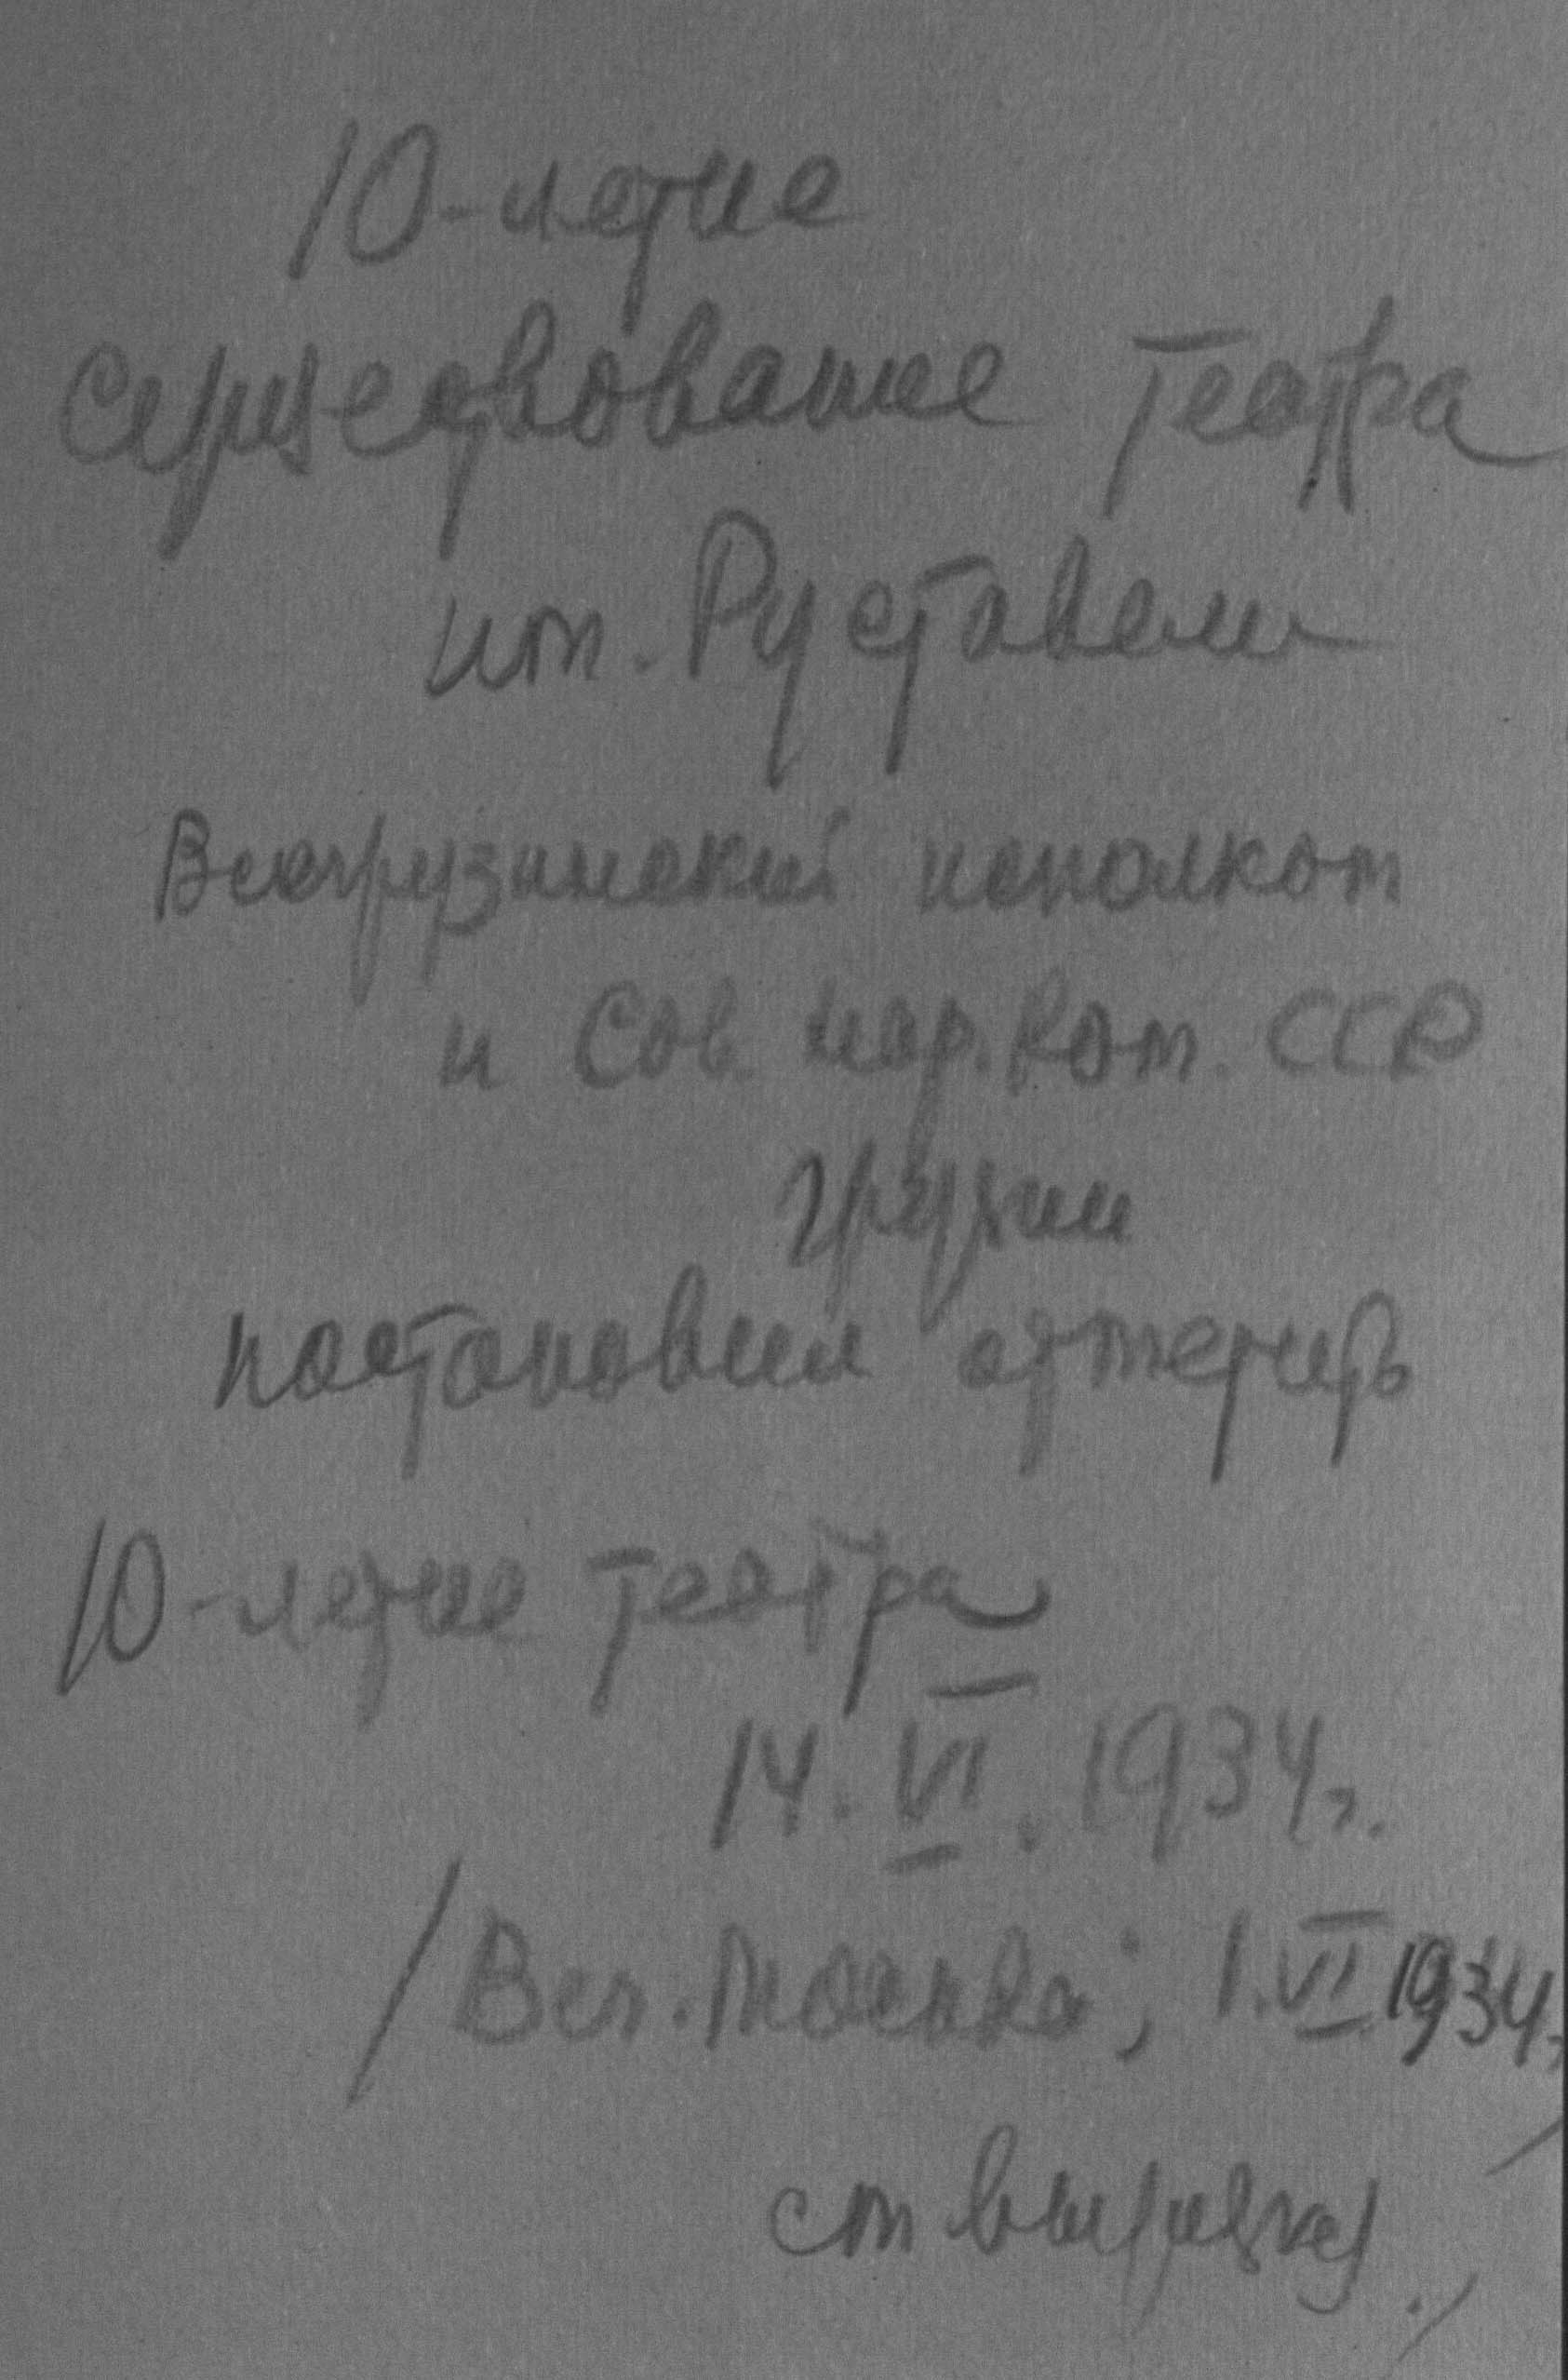 10-летие
существование театра
им. Руставели
Всегрузинский исполком
и Сов. Нар. Ком. ССР
Грузии
постановил отметить
10-летие театра
14. VI. 1934 г.
/Веч. Москва; 1. VI. 1934 г./
см вырезку./